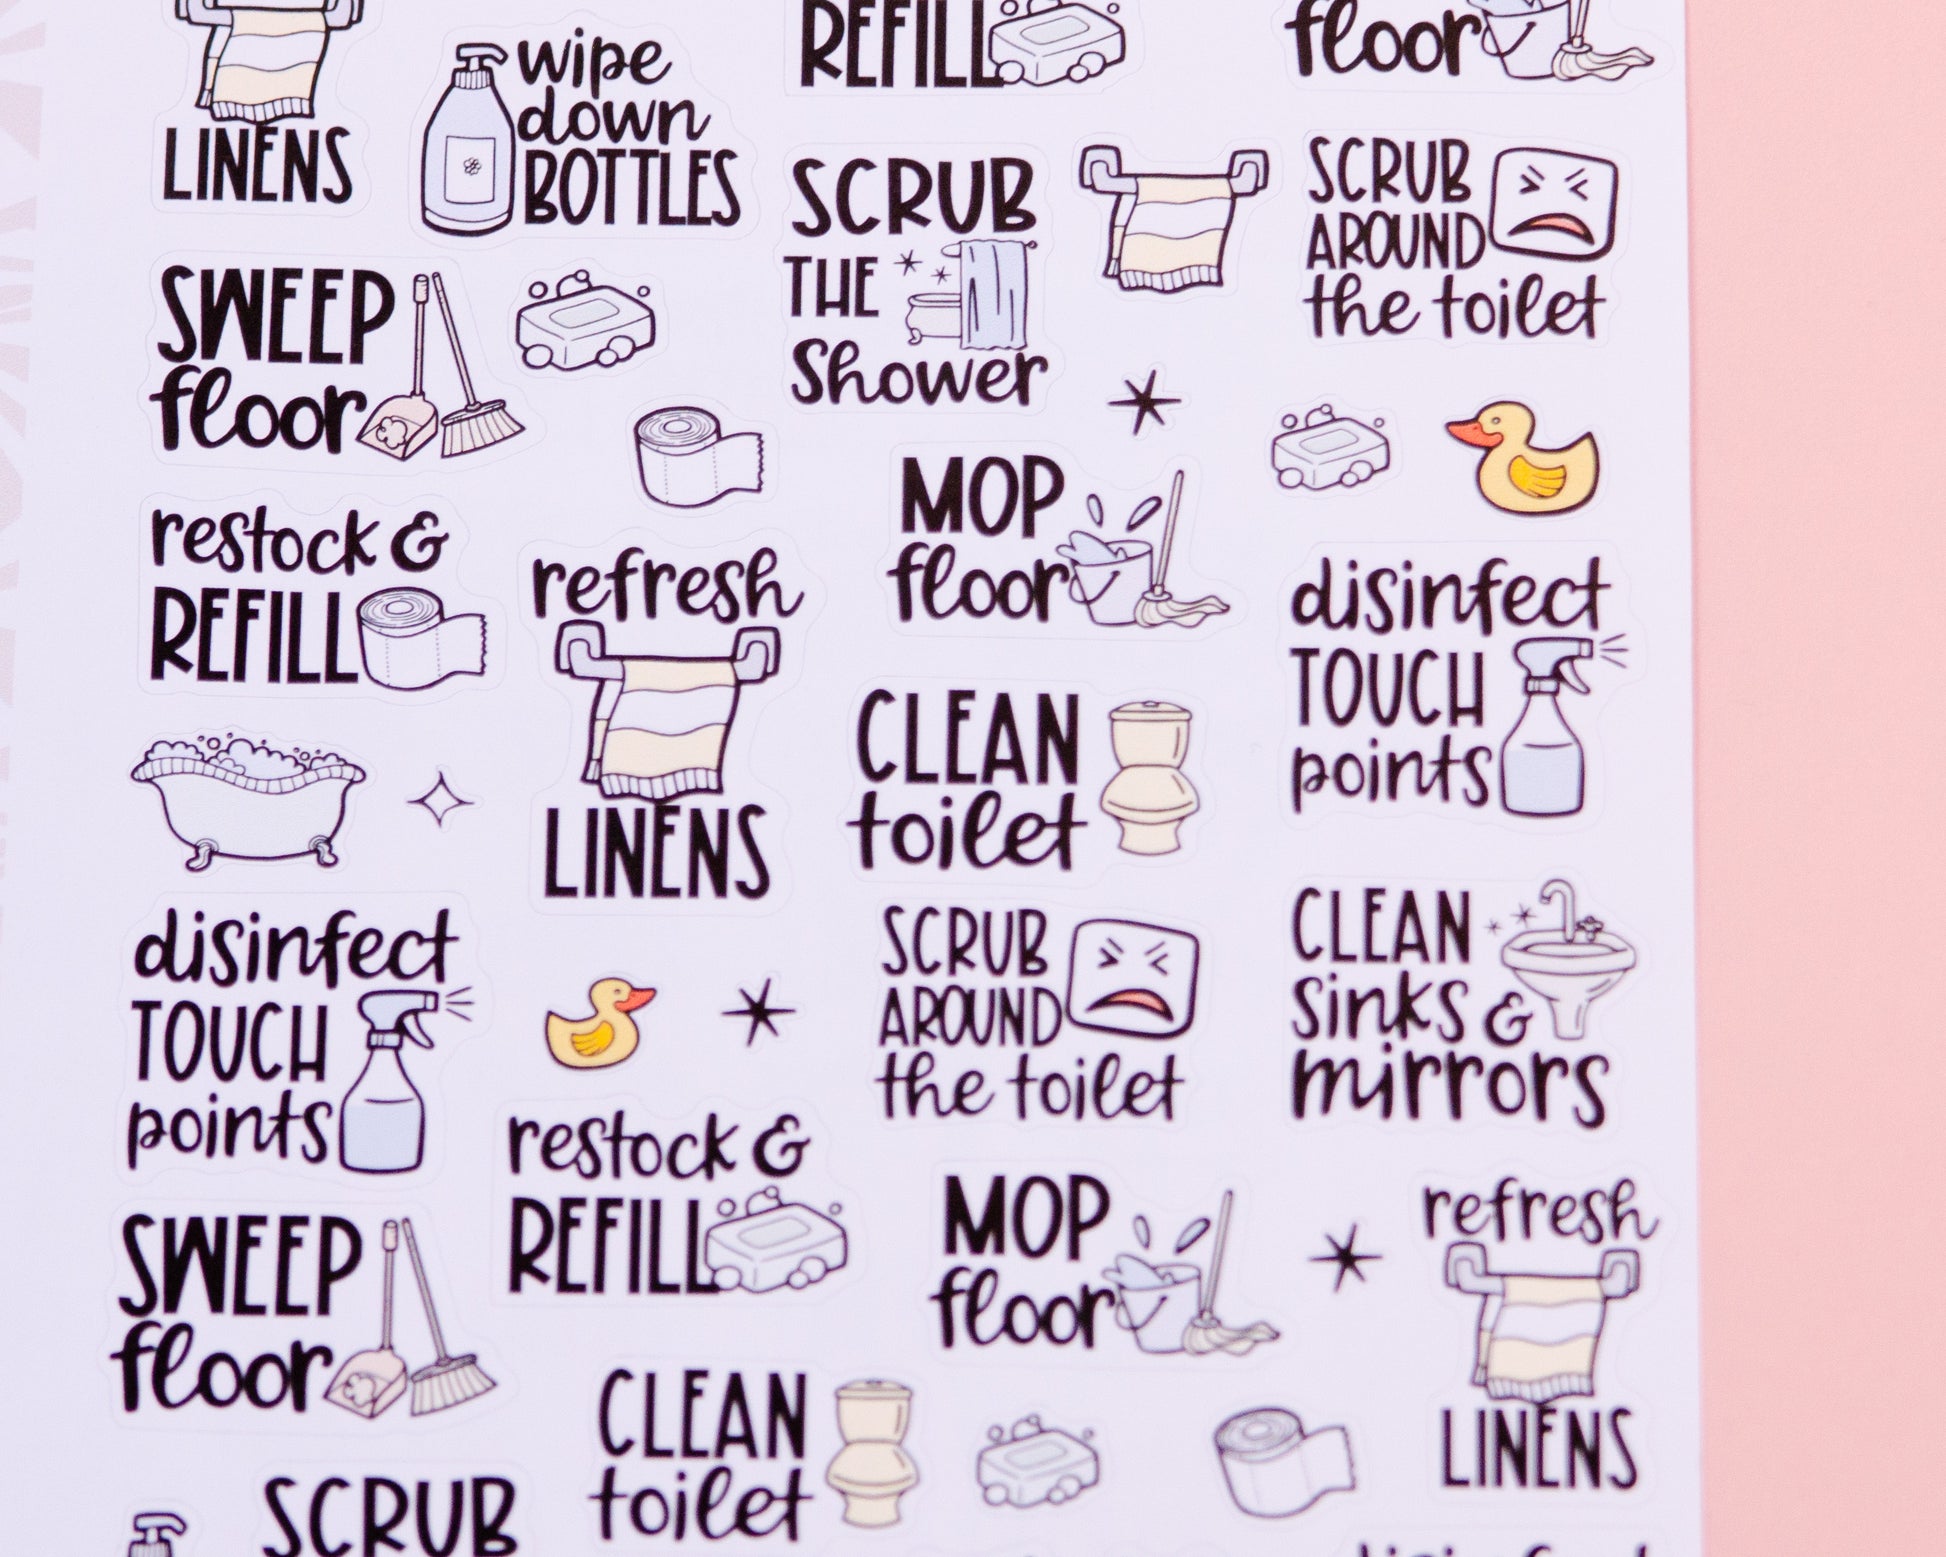 LINENS
wipe
down
BOTTLES
REFILL
floor
SCRUB
THE
Shower
SCRUB
AROUND
the toilet
SWEEP
floor
restock &
REFILL
refresh
LINENS
MOP
floor
disinfect
TOUCH
points
CLEAN
toilet
disinfect
TOUCH
points
SCRUB
AROUND
the toilet
CLEAN
sinks &
mirrors
restock &
REFILL
MOP
floor
refresh
LINENS
SWEEP
floor
CLEAN
toilet
SCRUB